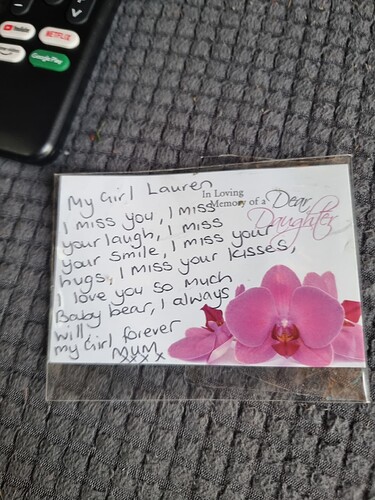 YouTube
NETFLIX
prime video
Google Play
My Girl Lauren
In Loving
Memory of a Dear
Daughter
I miss you, I miss
your laugh, I miss
your smile, I miss your
hugs, I miss your kisses,
I love you so much
Baby bear, I always
will,
my Girl forever
MUM
xxxx